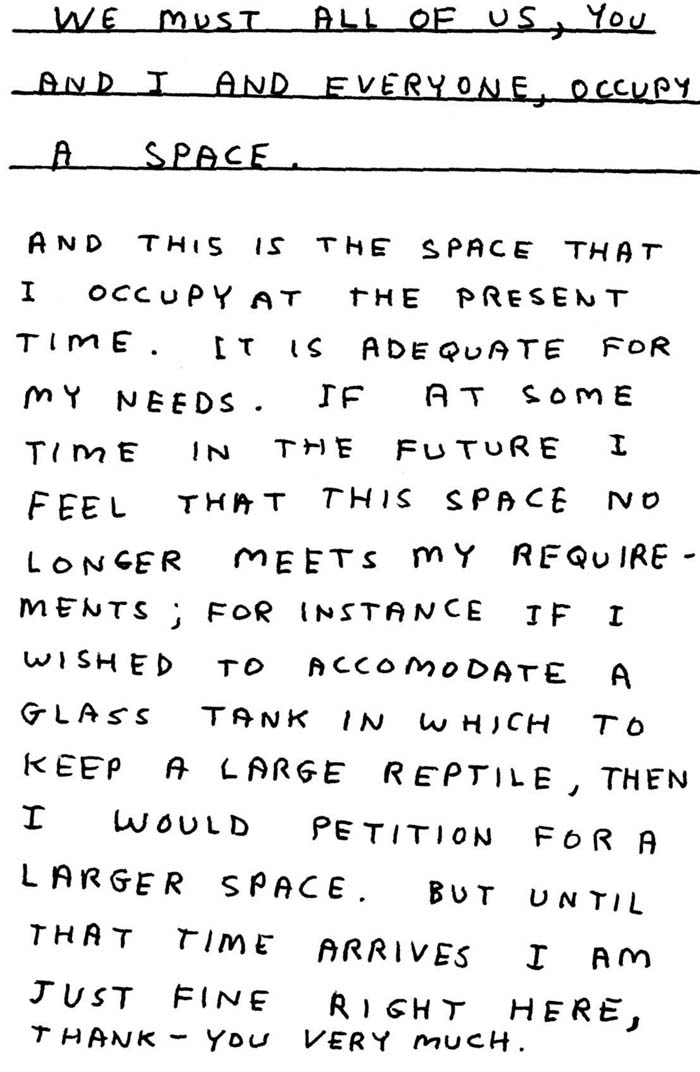 WE MUST ALL OF US, YOU
AND I AND EVERYONE, OCCUPY
A SPACE.
AND THIS IS THE SPACE THAT
I OCCUPY AT THE PRESENT
TIME. IT IS ADEQUATE FOR
MY NEEDS. IF AT SOME
TIME IN THE FUTURE I
FEEL THAT THIS SPACE NO
LONGER MEETS MY REQUIRE-
MENTS; FOR INSTANCE IF I
WISHED TO ACCOMODATE A
GLASS TANK IN WHICH TO
KEEP A LARGE REPTILE, THEN
I WOULD PETITION FOR A
LARGER SPACE. BUT UNTIL
THAT TIME ARRIVES I AM
JUST FINE RIGHT HERE,
THANK-YOU VERY MUCH.